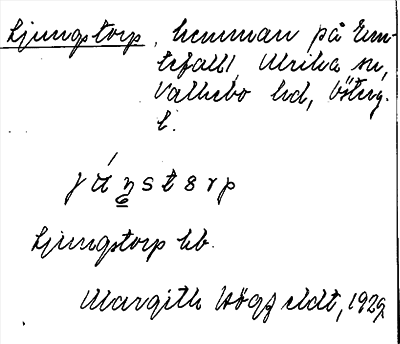 Ljungstorp, hemman på Em-
tefall, Ulrika sn,
Valkebo hd, Österg.
l.
Ljungstorp hb.
Margith Högfeldt, 1929